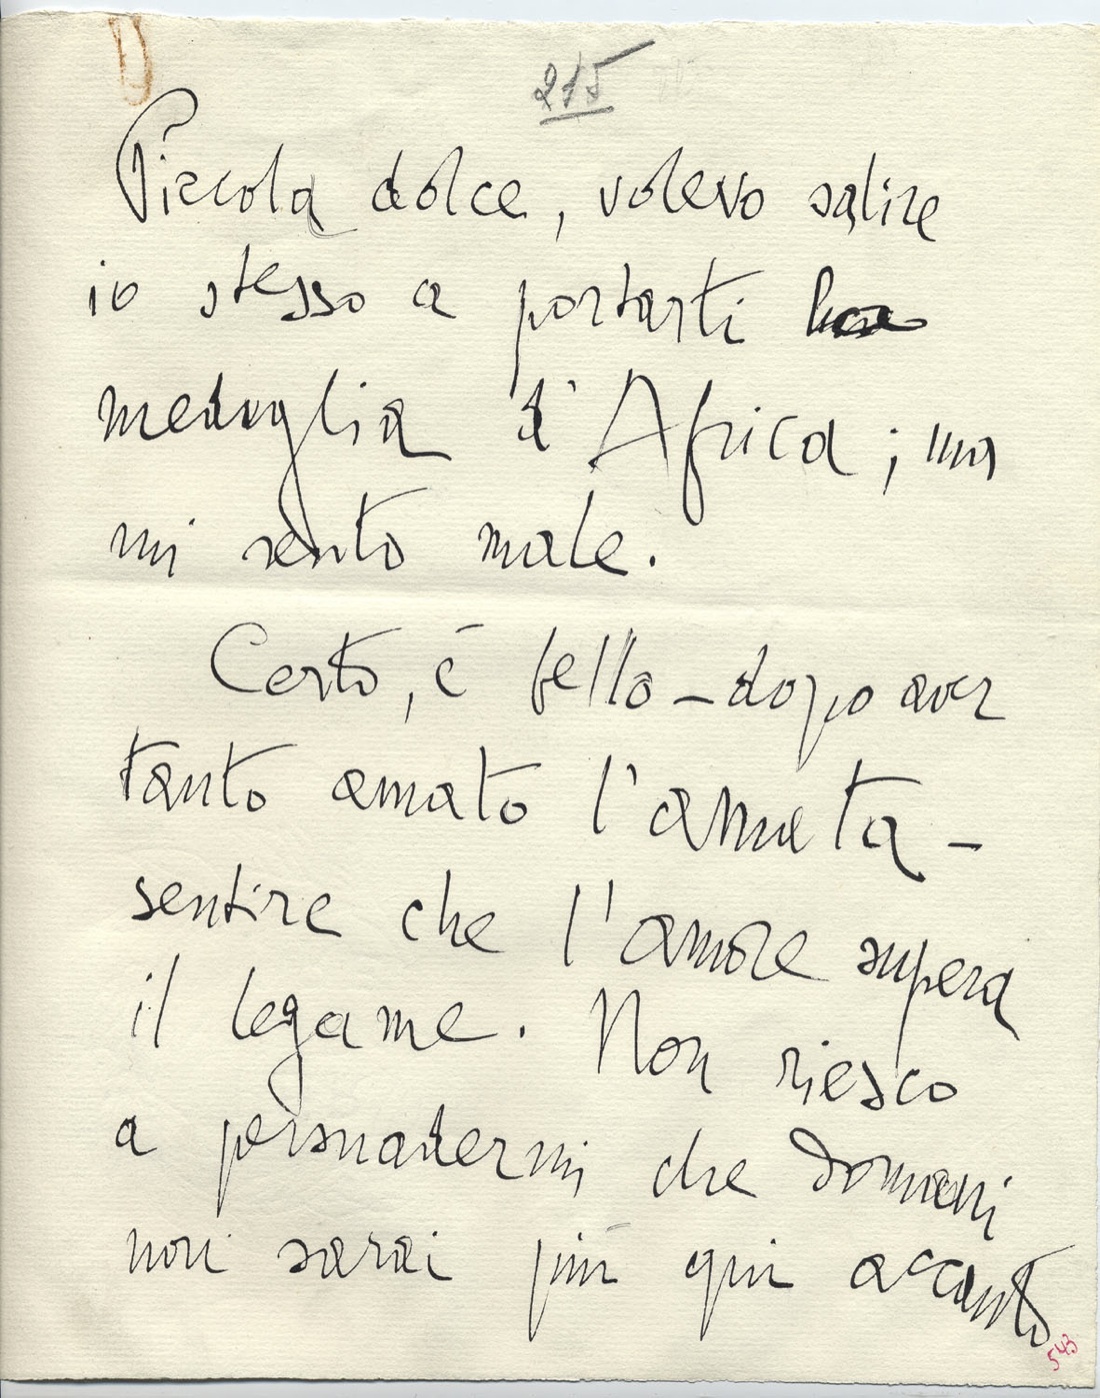 1)
215
Piccola dolce, volevo salire
io stesso a portarti
medaglia d'Africa; ma
mi sento male.
Certo, è bello – dopo aver
tanto amato l'amata –
sentire che l'amore supera
il legame. Non riesco
a persuadermi che domani
non sarai più qui accanto
543